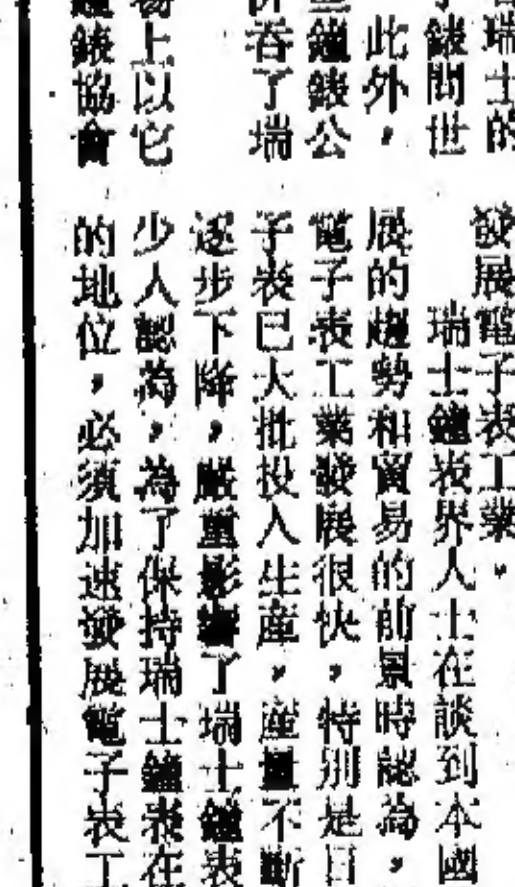 瑞士的
錶問世
此外，
鐘錶公
吞了瑞
上以它
錶協會
發展電子表工業。
瑞士鐘表界人士在談到本國
展的趨勢和貿易的前景時認為，
電子表工業發展很快，特別是日
子表已大批投入生產，產量不斷
逐步下降，嚴重影響了瑞士鐘表
少人認為，為了保持瑞士鐘表在
的地位，必須加速發展電子表工